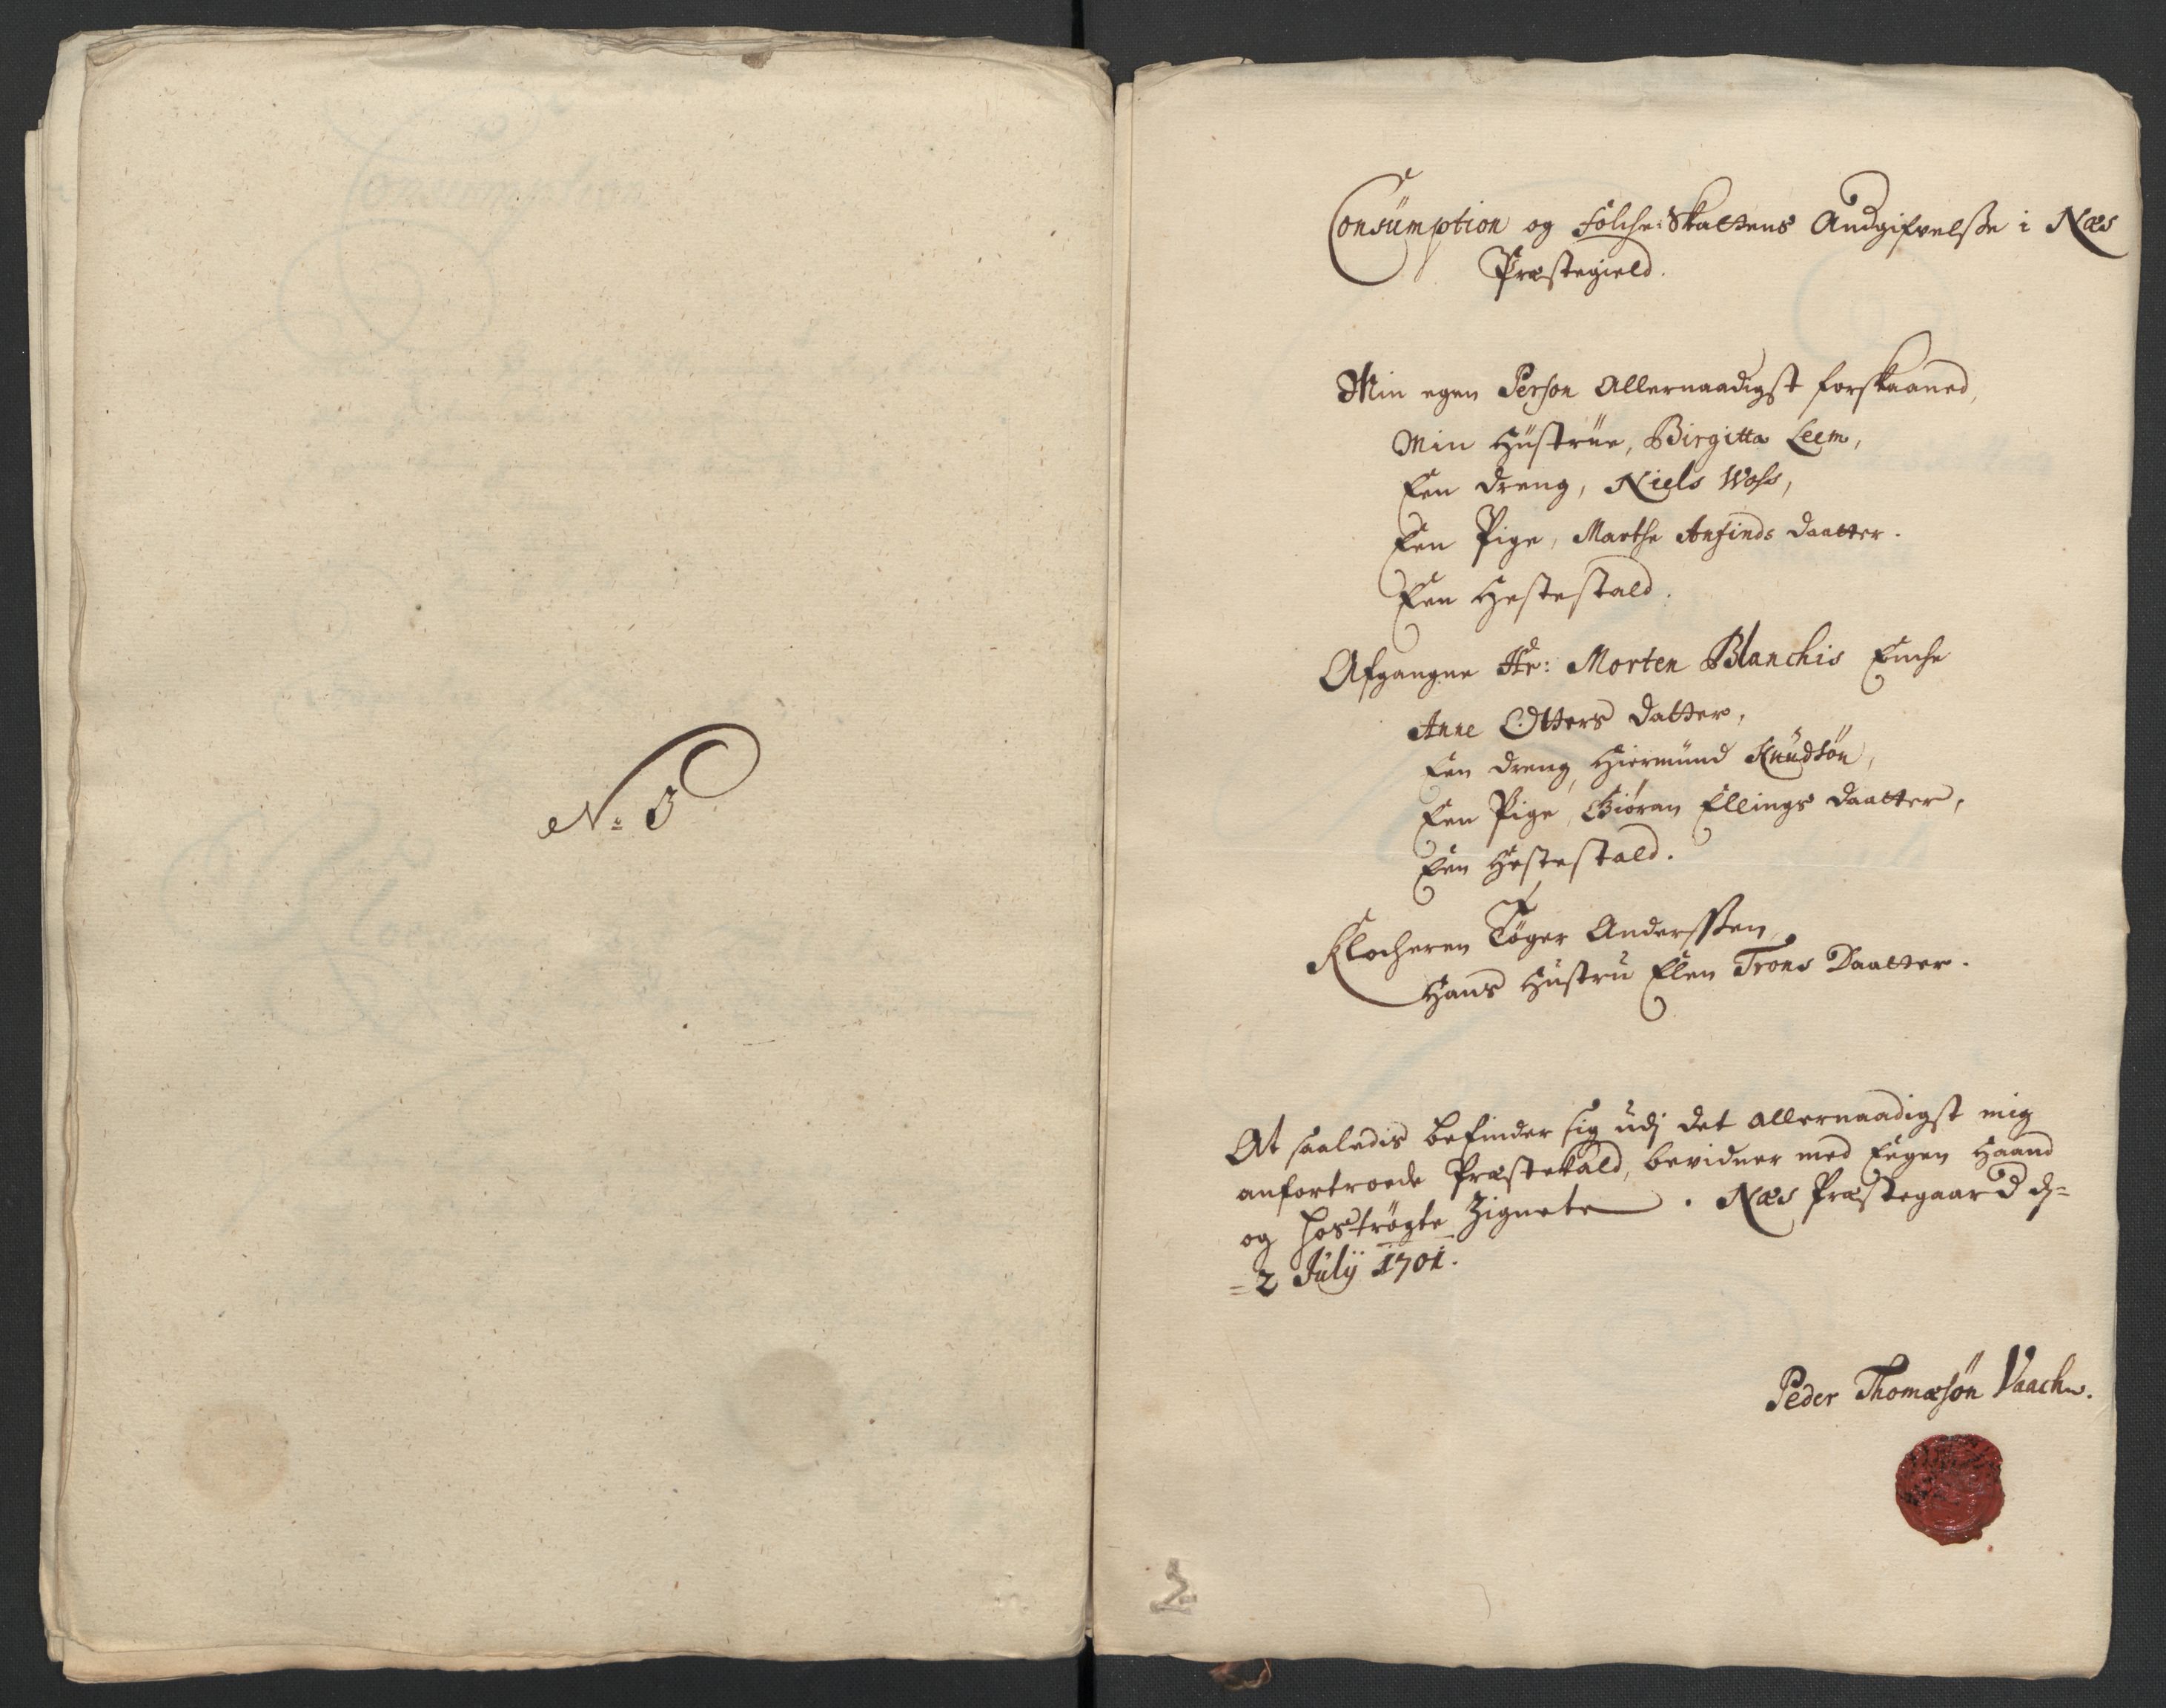 N: 3
Consumption og Folche-Skattens Andgifvelsse i Næs
Præstegield.
Min egen Person Allernaadigst forskaaned,
Min Hüstrüe, Birgitta Leem,
Een dreng, Niels Woss,
Een Pige, Marthe Anfinds daatter.
Een Hestestald.
Afgangne Hr: Morten Blanchis Enche
Anne Otters datter,
Een dreng, Hiermünd Knüdsön,
Een Pige, Giøran Ellings daatter,
Een Hestestald.
Klocheren Tøger Anderssen,
Hans Hüstrü Elen Trons Daatter.
At saaledis befinder sig üdj det allernaadigst mig
anfortroede Præstekald, bevidner med Eegen Haand
og hoströgte Zignete. Næs Præstegaard d-
=2 Julij 1701.
Peder Thomæsøn Vaach.